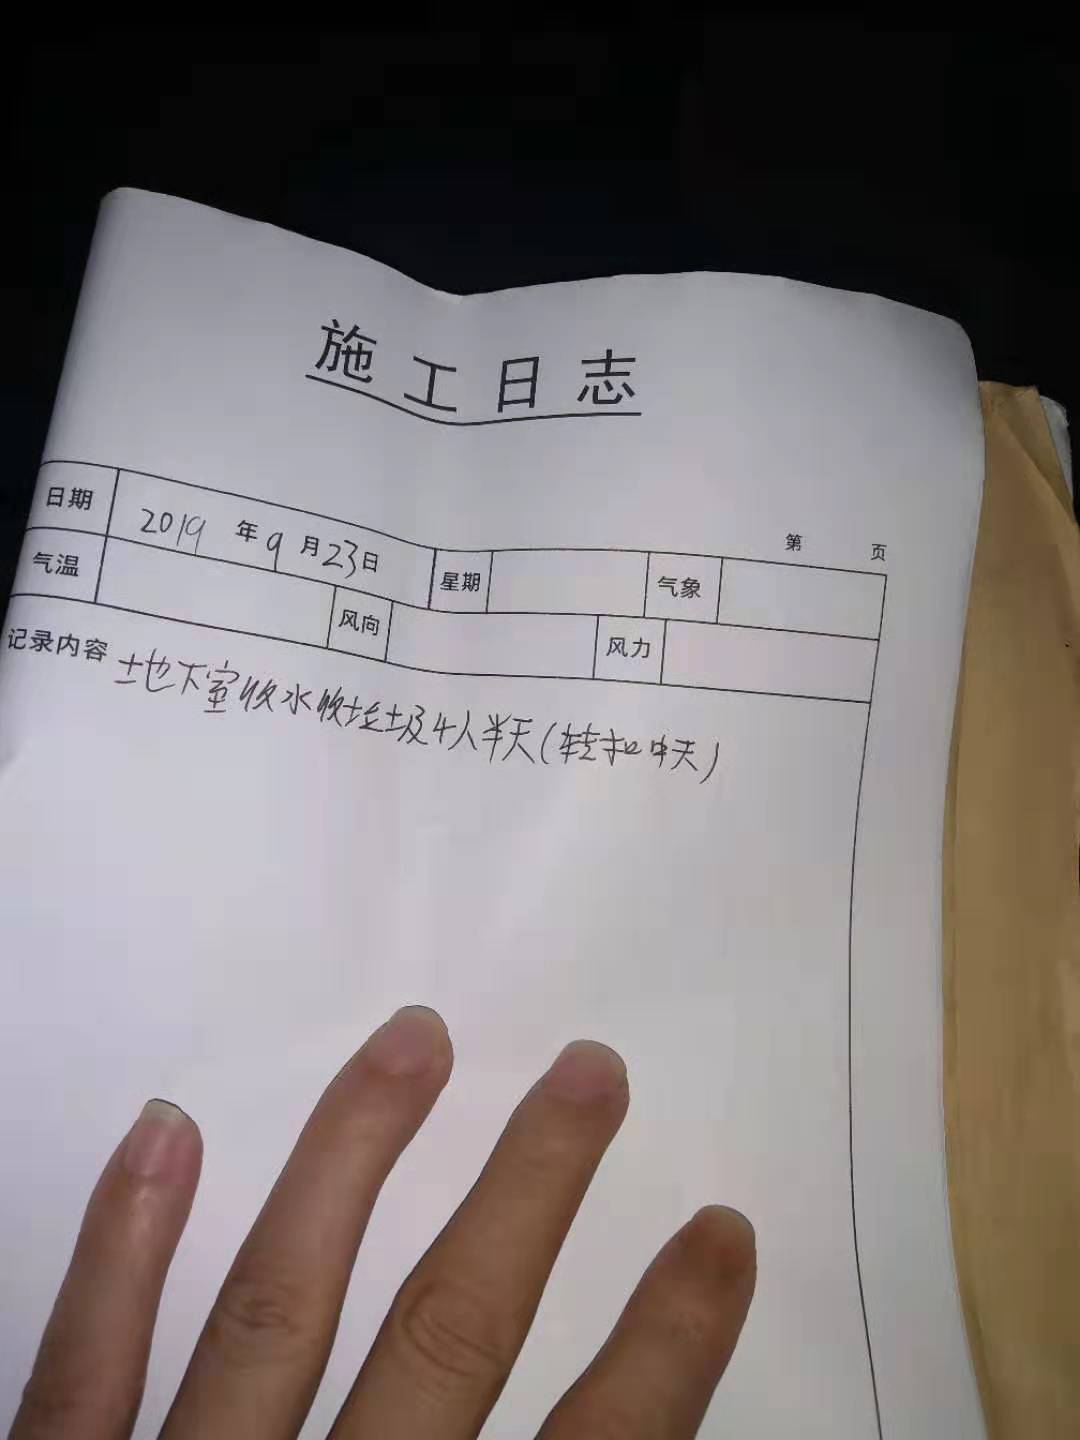 施工日志
第 页
日期 2019年9月23日 星期 气象
气温 风向 风力
记录内容 地下室收水收垃圾4人半天(转扣中天)